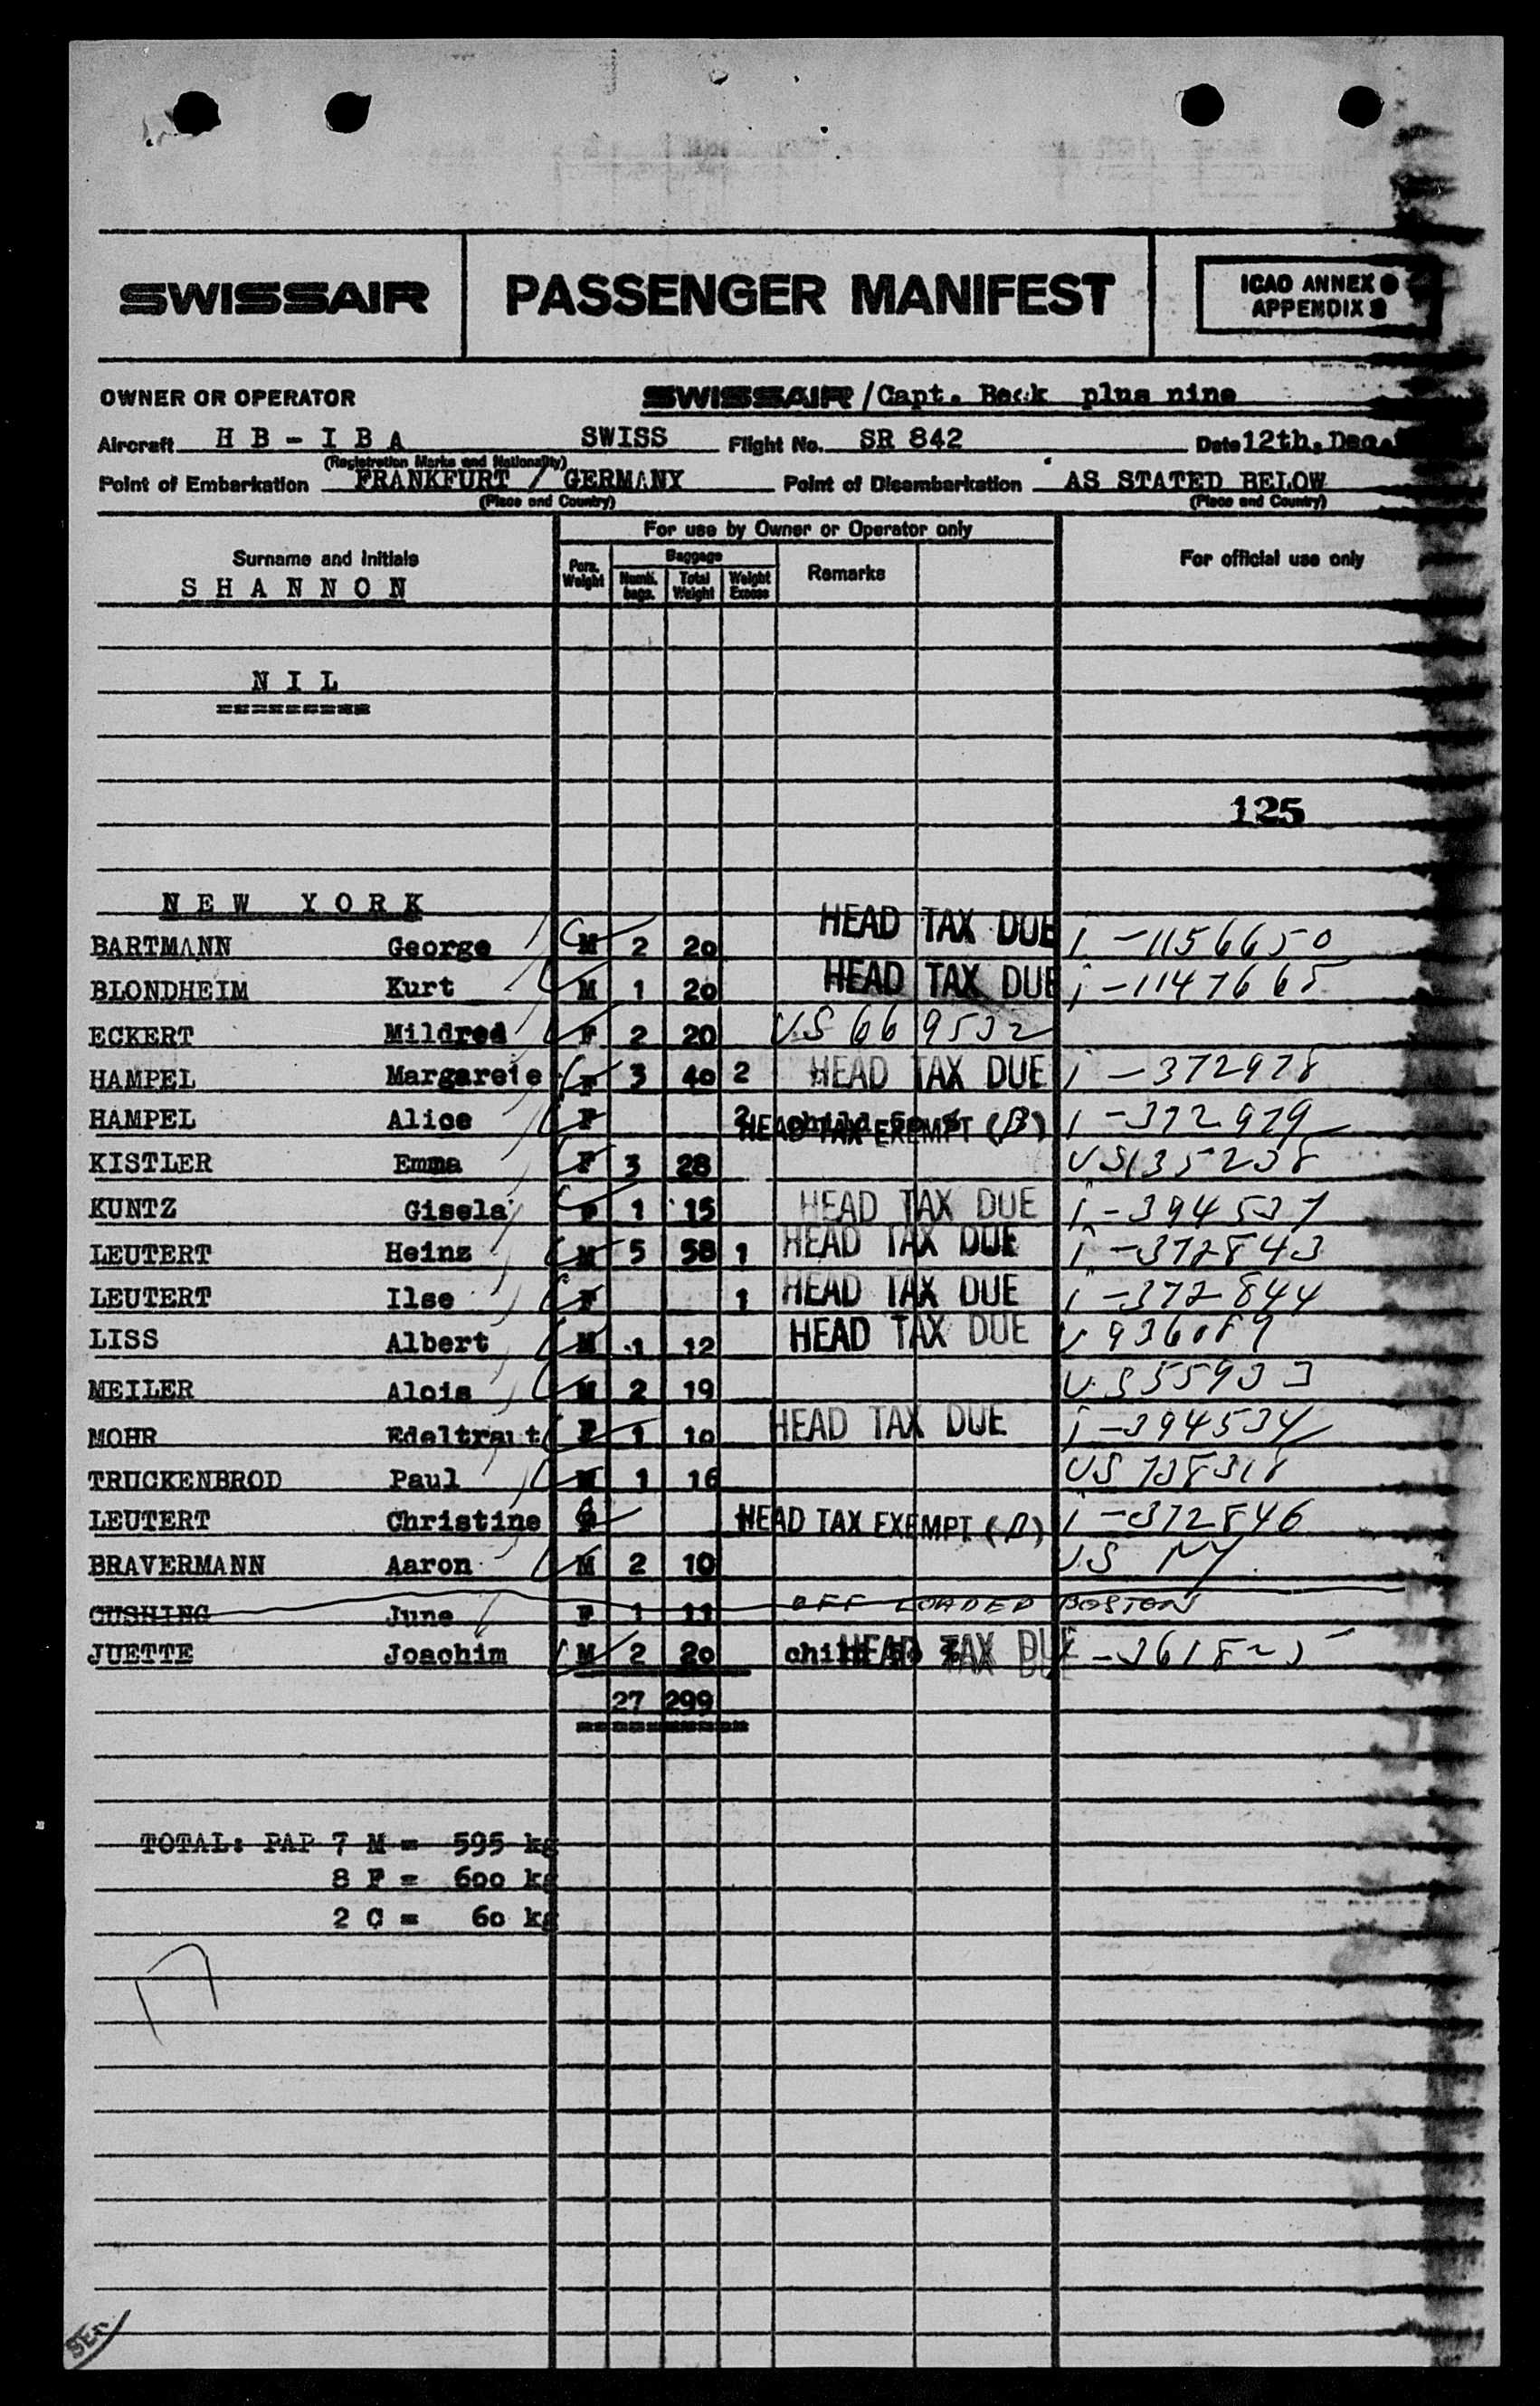 SWISSAIR PASSENGER MANIFEST ICAO ANNEX 9
APPENDIX 2
OWNER OR OPERATOR SWISSAIR /Capt. Beck plus nine
Aircraft H B - I B A SWISS Flight No. SR 842 Date 12th. Dec.
(Registration Marks and Nationality)
Point of Embarkation FRANKFURT / GERMANY Point of Disembarkation AS STATED BELOW
(Place and Country) (Place and Country)
For use by Owner or Operator only
Surname and Initials Pers. Weight Baggage Numb. bags. Total Weight Weight Excess Remarks For official use only
S H A N N O N
N I L
=========
125
N E W Y O R K
BARTMANN George M 2 20 HEAD TAX DUE i-1156650
BLONDHEIM Kurt M 1 20 HEAD TAX DUE i-1147665
ECKERT Mildred F 2 20 US 669532
HAMPEL Margarete F 3 40 2 HEAD TAX DUE i-372978
HAMPEL Alice F 2 child 50 % HEAD TAX EXEMPT (B) i-372979
KISTLER Emma F 3 28 US135238
KUNTZ Gisela F 1 15 HEAD TAX DUE i-394537
LEUTERT Heinz M 5 58 1 HEAD TAX DUE i-372843
LEUTERT Ilse F 1 HEAD TAX DUE i-372844
LISS Albert M 1 12 HEAD TAX DUE
MEILER Alois M 2 19 US 55933
MOHR Edeltraut F 1 10 HEAD TAX DUE i-394534
TRUCKENBROD Paul M 1 16 US 738318
LEUTERT Christine HEAD TAX EXEMPT (B) i-372846
BRAVERMANN Aaron M 2 10 US NY
CUSHING June F 1 11 OFF LOADED BOSTON
JUETTE Joachim M 2 20 child 50 % HEAD TAX DUE
27 299
TOTAL: PAP 7 M = 595 kg
8 F = 600 kg
2 C = 60 kg
17
SEP